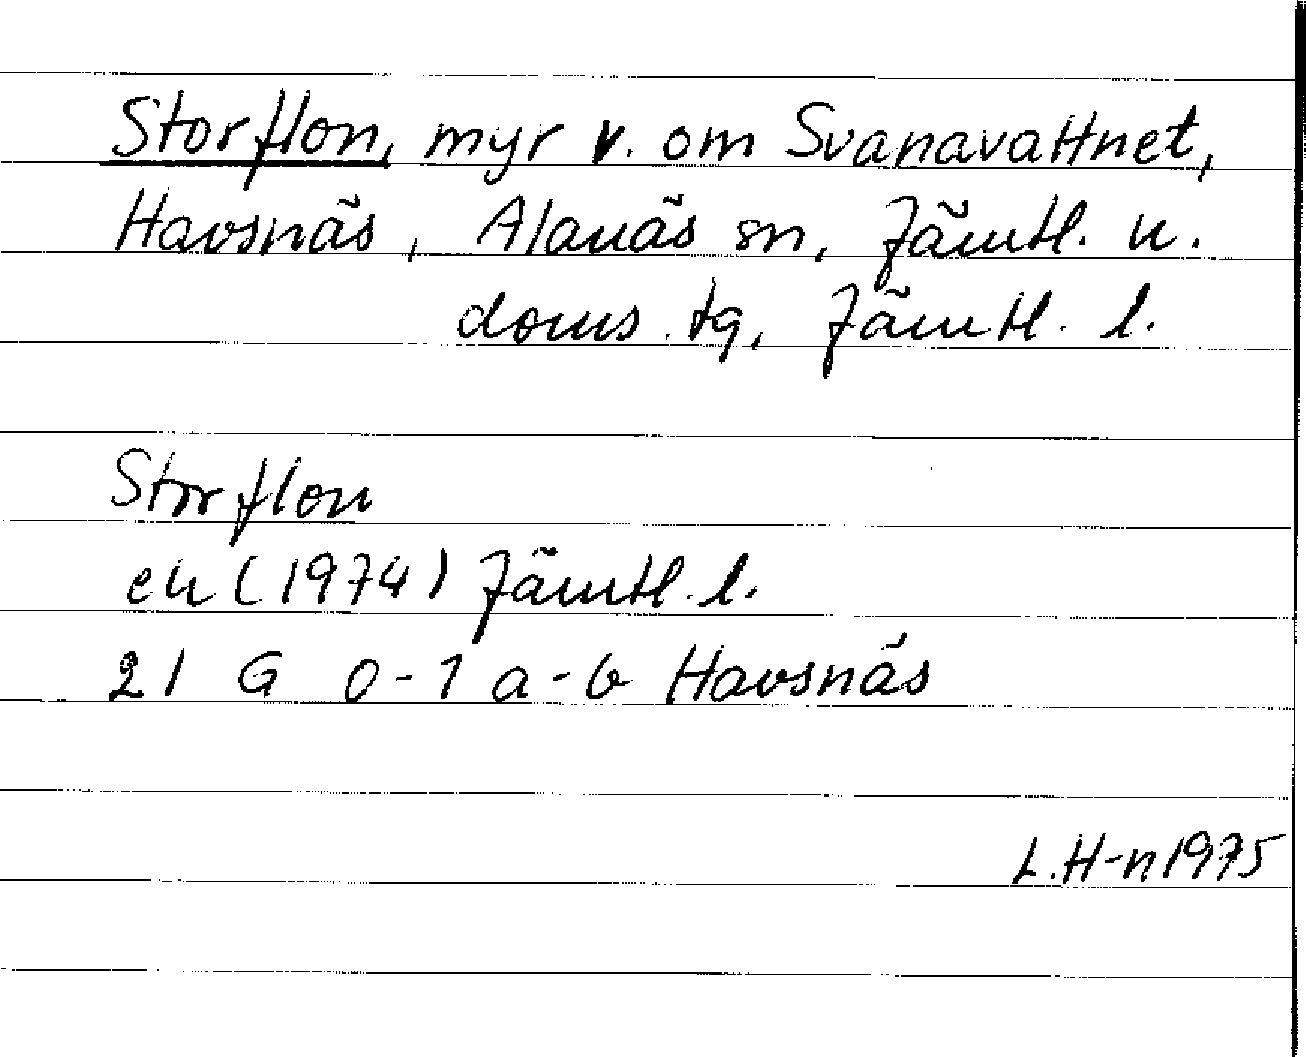 Storflon, myr v. om Svanavattnet,
Havsnäs, Alanäs sn, Jämtl. n.
doms.tg, Jämtl. l.
Storflon
ek (1974) Jämtl. l.
21 G 0-1 a-b Havsnäs
L.H-n 1975